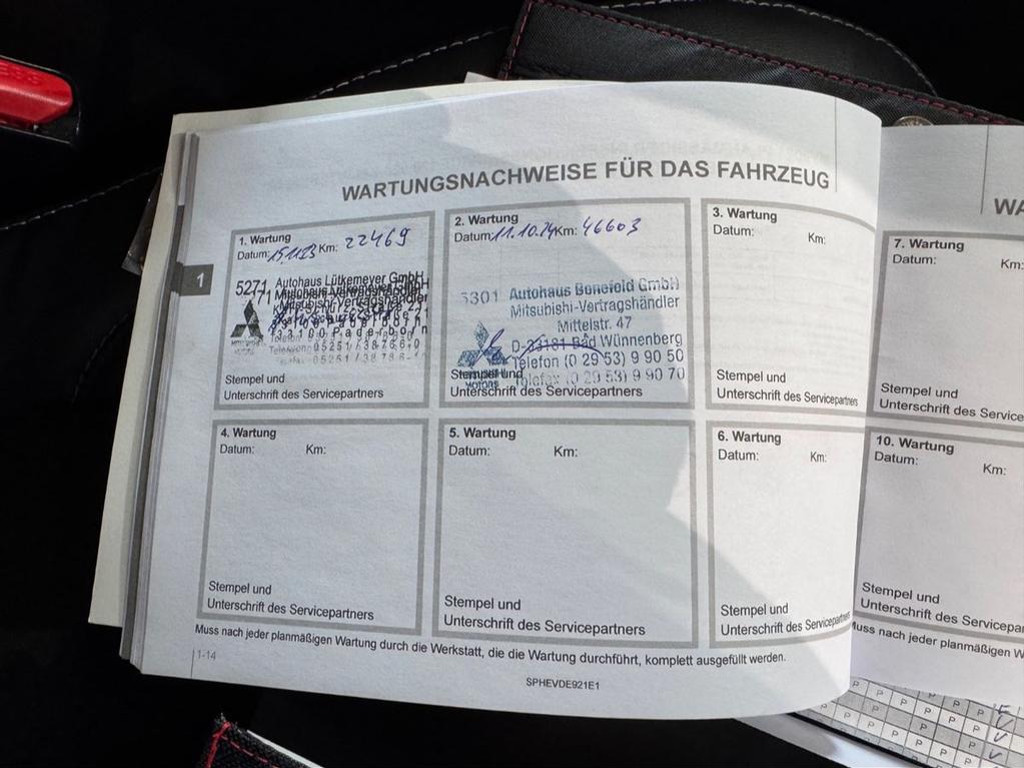 WARTUNGSNACHWEISE FÜR DAS FAHRZEUG
1
1. Wartung
Datum: Km: 22469
5271 Autohaus Lütkemeyer GmbH
Mitsubishi-Vertragshändler
33100 Paderborn
Stempel und
Unterschrift des Servicepartners
2. Wartung
Datum: 11.10.24 Km: 46603
5301 Autohaus Bonefeld GmbH
Mitsubishi-Vertragshändler
Mittelstr. 47
Bad Wünnenberg
Telefon (0 29 53) 9 90 50
Telefax (0 29 53) 9 90 70
MOTORS
Stempel und
Unterschrift des Servicepartners
3. Wartung
Datum: Km:
Stempel und
Unterschrift des Servicepartners
4. Wartung
Datum: Km:
Stempel und
Unterschrift des Servicepartners
5. Wartung
Datum: Km:
Stempel und
Unterschrift des Servicepartners
6. Wartung
Datum: Km:
Stempel und
Unterschrift des Servicepartners
Muss nach jeder planmäßigen Wartung durch die Werkstatt, die die Wartung durchführt, komplett ausgefüllt werden.
1-14
SPHEVDE921E1
WA
7. Wartung
Datum: Km:
Stempel und
Unterschrift des Service
10. Wartung
Datum: Km:
Stempel und
Unterschrift des Servicepa
Muss nach jeder planmäßigen W